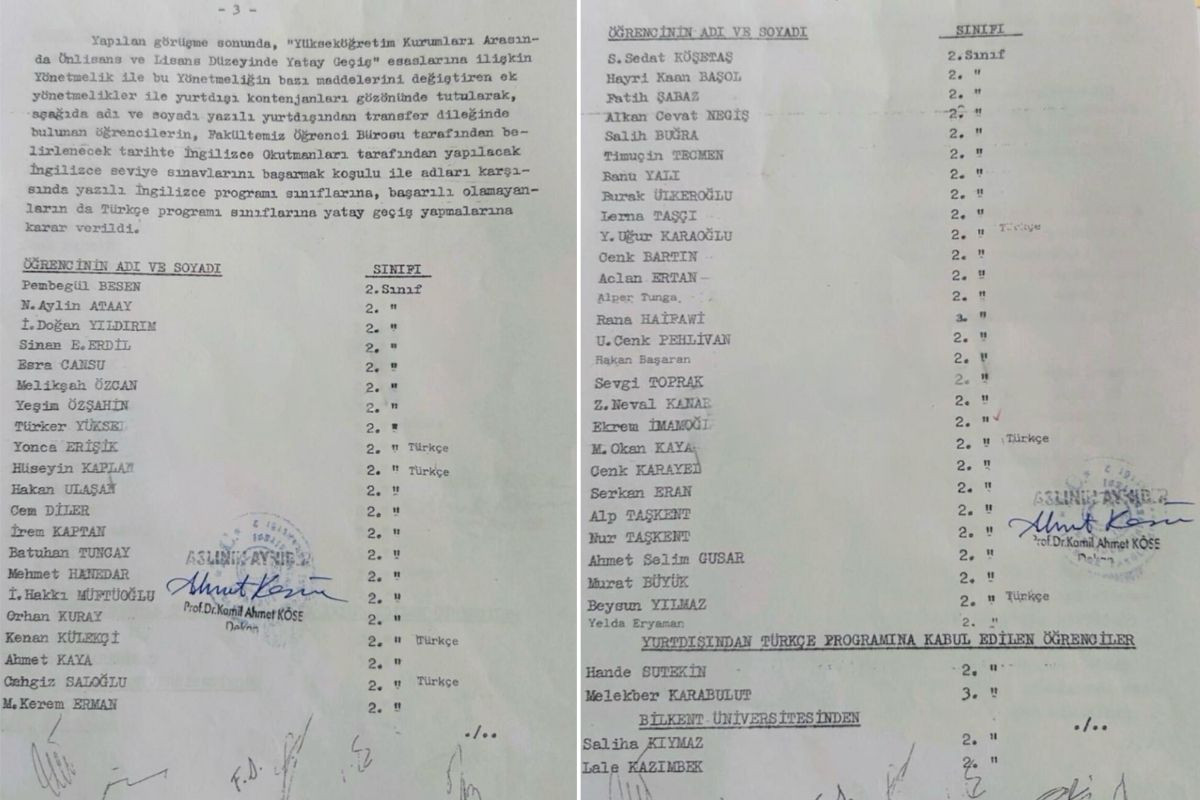 - 3 -
Yapılan görüşme sonunda, "Yükseköğretim Kurumları Arasın-
da Önlisans ve Lisans Düzeyinde Yatay Geçiş" esaslarına ilişkin
Yönetmelik ile bu Yönetmeliğin bazı maddelerini değiştiren ek
yönetmelikler ile yurtdışı kontenjanları gözönünde tutularak,
aşağıda adı ve soyadı yazılı yurtdışından transfer dileğinde
bulunan öğrencilerin, Fakültemiz Öğrenci Bürosu tarafından be-
lirlenecek tarihte İngilizce Okutmanları tarafından yapılacak
İngilizce seviye sınavlarını başarmak koşulu ile adları karşı-
sında yazılı İngilizce programı sınıflarına, başarılı olamayan-
ların da Türkçe programı sınıflarına yatay geçiş yapmalarına
karar verildi.
ÖĞRENCİNİN ADI VE SOYADI SINIFI
Pembegül BESEN 2.Sınıf
N.Aylin ATAAY 2. "
İ.Doğan YILDIRIM 2. "
Sinan E.ERDİL 2. "
Esra CANSU 2. "
Melikşah ÖZCAN 2. "
Yeşim ÖZŞAHİN 2. "
Türker YÜKSEL 2. "
Yonca ERİŞİK 2. " Türkçe
Hüseyin KAPLAN 2. " Türkçe
Hakan ULAŞAN 2. "
Cem DİLER 2. "
İrem KAPTAN 2. "
Batuhan TUNCAY 2. "
Mehmet HANEDAR 2. "
İ.Hakkı MÜFTÜOĞLU 2. "
Orhan KURAY 2. "
Kenan KÜLEKÇİ 2. " Türkçe
Ahmet KAYA 2. "
Cengiz SALOĞLU 2. " Türkçe
M.Kerem ERMAN 2. "
ASLININ AYNIDIR
Prof.Dr.Kamil Ahmet KÖSE
Dekan
./..
F.D.
ÖĞRENCİNİN ADI VE SOYADI SINIFI
S.Sedat KÖŞETAŞ 2.Sınıf
Hayri Kaan BAŞOL 2. "
Fatih ŞABAZ 2. "
Alkan Cevat NEGİŞ 2. "
Salih BUĞRA 2. "
Timuçin TECMEN 2. "
Banu YALI 2. "
Burak ÜLKEROĞLU 2. "
Lerna TAŞÇI 2. "
Y.Uğur KARAOĞLU 2. " Türkçe
Cenk BARTIN 2. "
Aclan ERTAN 2. "
Alper Tunga 2. "
Rana HAİFAWİ 3. "
U.Cenk PEHLİVAN 2. "
Hakan Başaran 2. "
Sevgi TOPRAK 2. "
Z.Neval KANAR 2. "
Ekrem İMAMOĞL 2. "
M.Okan KAYA 2. " Türkçe
Cenk KARAYEL 2. "
Serkan ERAN 2. "
Alp TAŞKENT 2. "
Nur TAŞKENT 2. "
Ahmet Selim GUSAR 2. "
Murat BÜYÜK 2. "
Beysun YILMAZ 2. " Türkçe
Yelda Eryaman 2. "
ASLININ AYNIDIR
Prof.Dr.Kamil Ahmet KÖSE
Dekan
YURTDIŞINDAN TÜRKÇE PROGRAMINA KABUL EDİLEN ÖĞRENCİLER
Hande SUTEKİN 2. "
Melekber KARABULUT 3. "
BİLKENT ÜNİVERSİTESİNDEN
./..
Saliha KIYMAZ 2. "
Lale KAZIMBEK 2. "